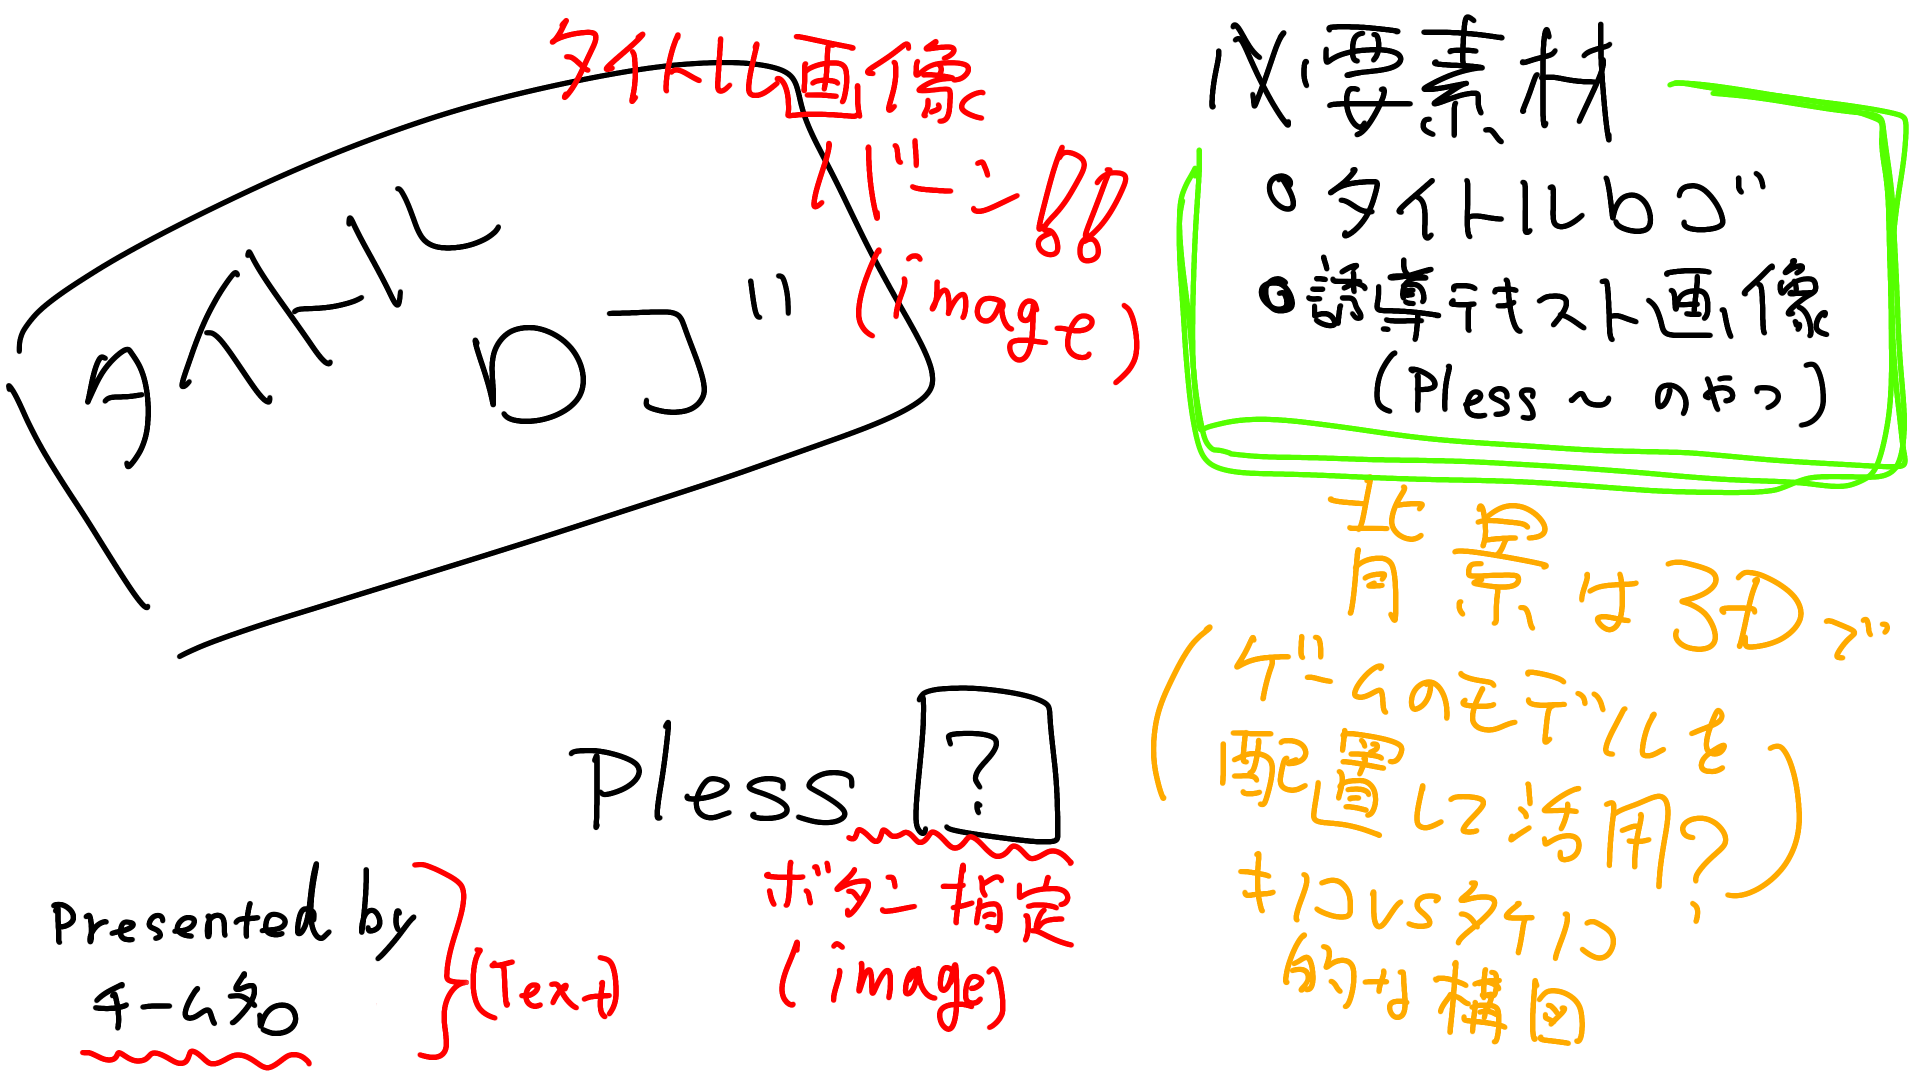 タイトル画像
バーン!!
(image)
タイトル
ロゴ
必要素材
タイトルロゴ
誘導テキスト画像
(Pless～のやつ)
背景は3Dで
(ゲームのモデルを
配置して活用?)
キノコvsタケノコ
的な構図
Pless ?
ボタン指定
(image)
Presented by
チーム
(Text)